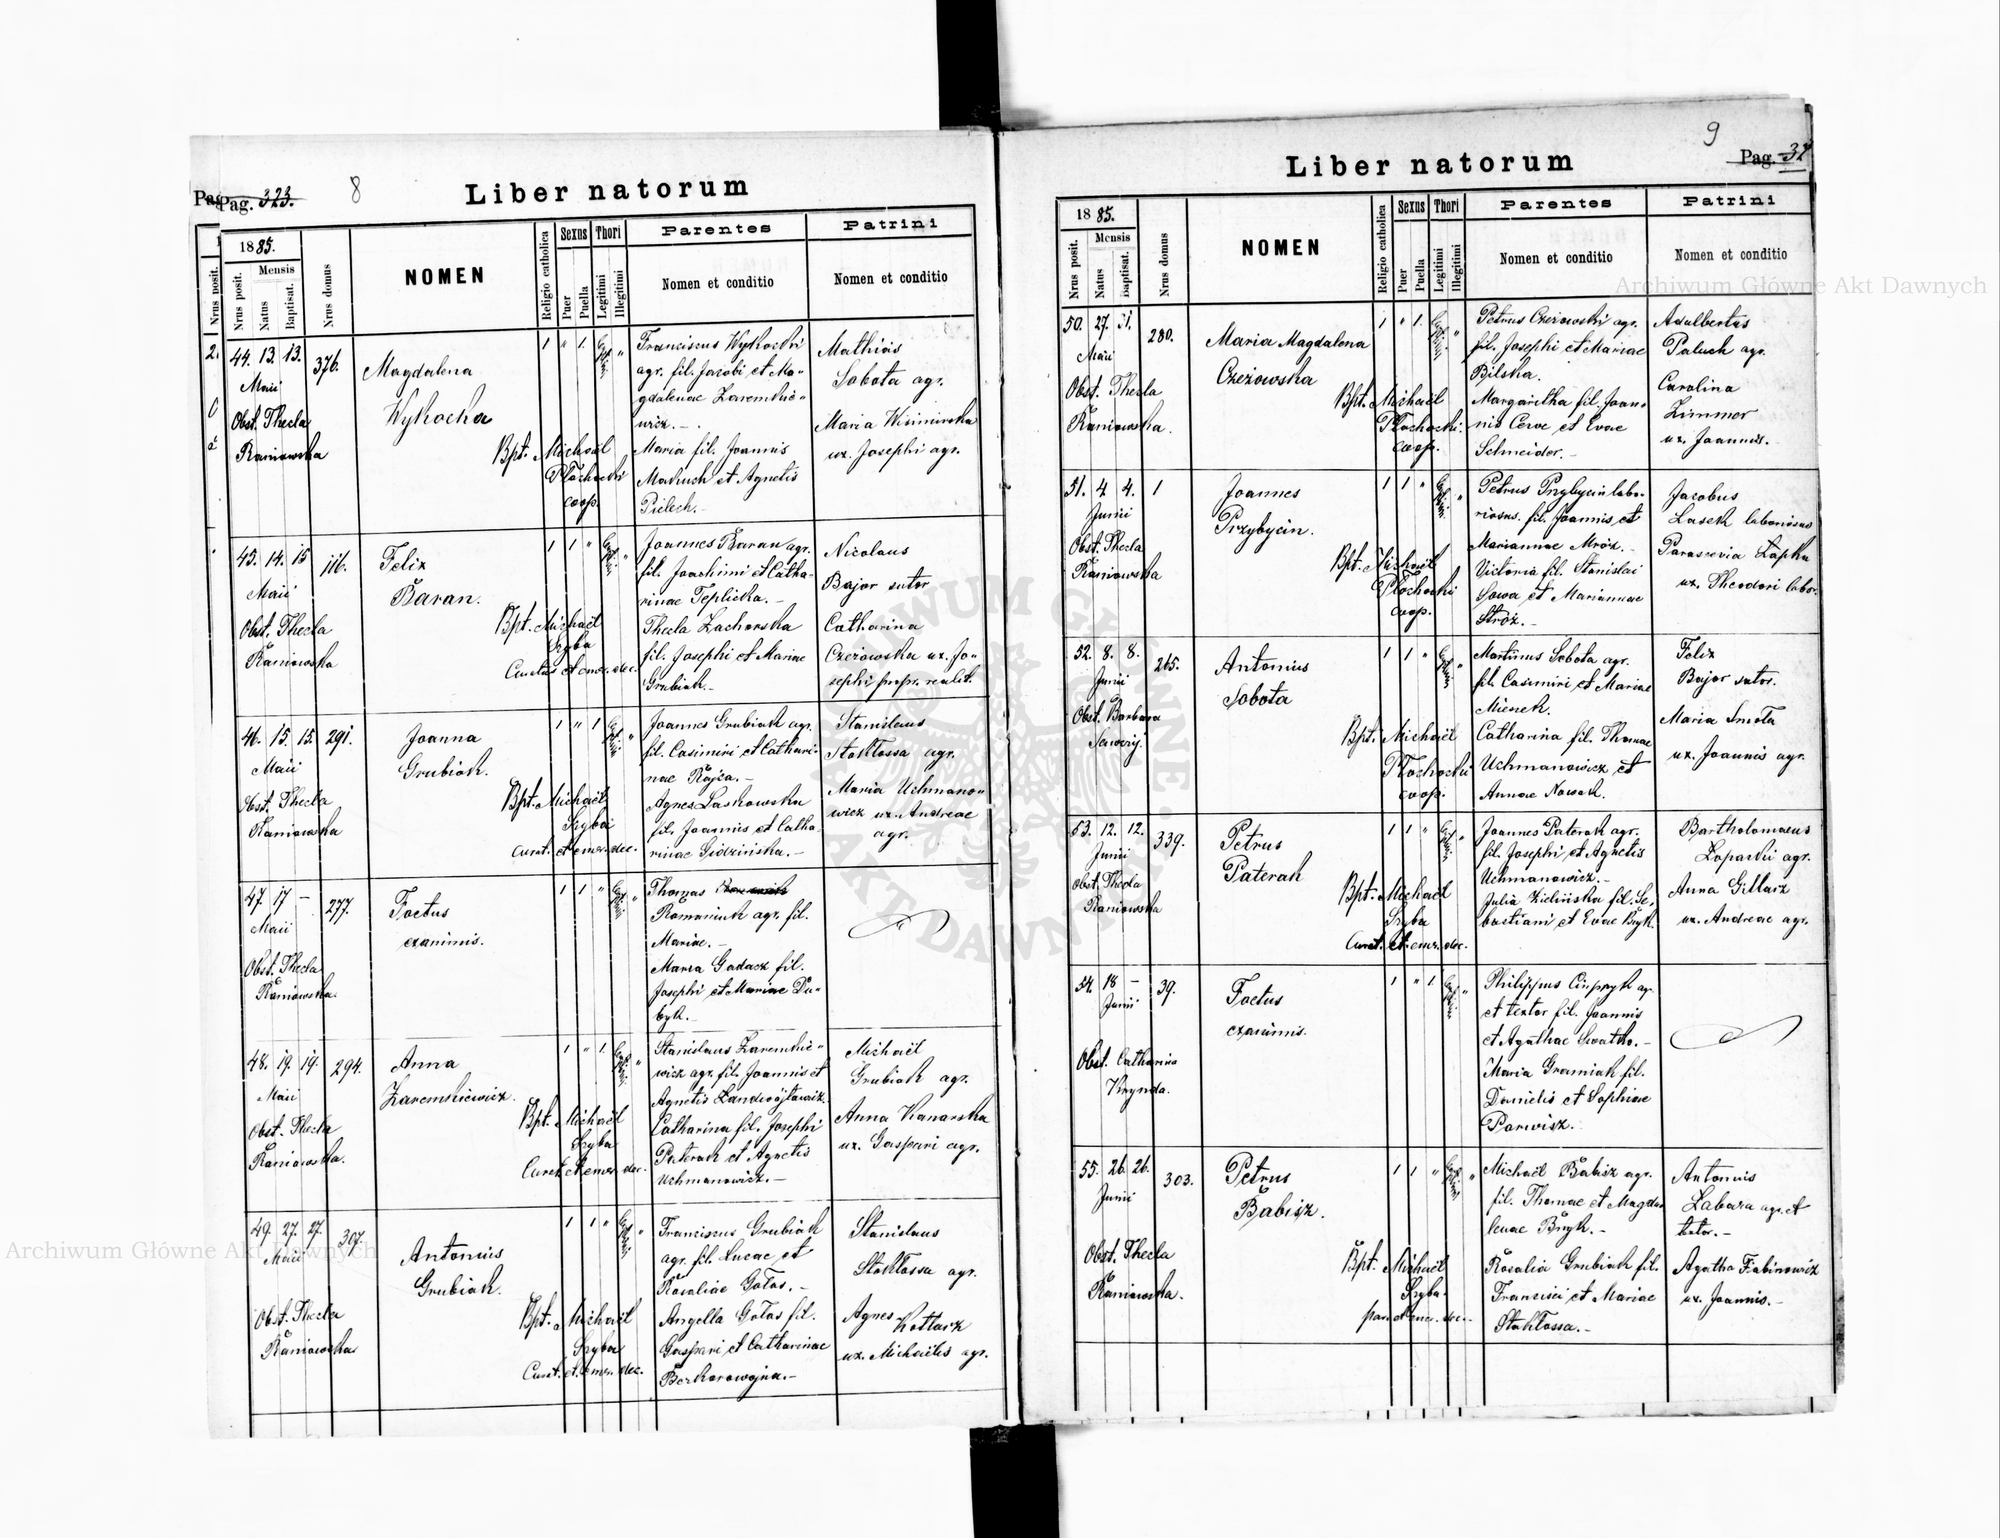 Pag. 323.
8
Liber natorum
1885.
Nrus posit.
Mensis
Natus
Baptisat.
Nrus domus
NOMEN
Religio catholica
Sexus
Puer
Puella
Thori
Legitimi
Illegitimi
Parentes
Nomen et conditio
Patrini
Nomen et conditio
44. 13. 13. 376.
Maii
Obst. Thecla
Raniowska
Magdalena
Wykocka
Bpt. Michaël
Płochocki
coop.
1 " 1
Franciscus Wykocki
agr. fil. Jacobi et Ma-
gdalenae Zaremkie-
wicz. -
Maria fil. Joannis
Maduch et Agnetis
Pielech. -
Mathias
Sobota agr.
Maria Wiśniwska
ux. Josephi agr.
45. 14. 15 116.
Maii
Obst. Thecla
Raniowska
Felix
Baran.
Bpt. Michaël
Szyba
Curatus et emer. dec.
1 1 "
Joannes Baran agr.
fil. Joachimi et Catha-
rinae Teplicka. -
Thecla Zacharska
fil. Josephi et Mariae
Grubiak. -
Nicolaus
Bajor sutor
Catharina
Czeżowska ux. Jo-
sephi propr. realit.
46. 15. 15. 291.
Maii
Obst. Thecla
Raniowska
Joanna
Grubiak.
Bpt. Michaël
Szyba
Curat. et emer. dec.
1 " 1
Joannes Grubiak agr.
fil. Casimiri et Cathari-
nae Rajca. -
Agnes Laskowska
fil. Joannis et Catha-
rinae Gidzińska. -
Stanislaus
Stokłossa agr.
Maria Uchmano-
wicz ux. Andreae
agr.
47. 17 - 277.
Maii
Obst. Thecla
Raniowska
Foetus
exanimis.
1 1 "
Thomas
Romaniuk agr. fil.
Mariae. -
Maria Gadacz fil.
Josephi et Mariae Du-
byk. -
48. 19. 19. 294.
Maii
Obst. Thecla
Raniowska.
Anna
Zaremkiewicz.
Bpt. Michaël
Szyba
Curat. et emer. dec.
1 " 1
Stanislaus Zaremkie-
wicz agr. fil. Joannis et
Agnetis Landwójtowicz.
Catharina fil. Josephi
Paterak et Agnetis
Uchmanowicz. -
Michaël
Grubiak agr.
Anna Kanarska
ux. Gaspari agr.
49. 27. 27. 307.
Maii
Obst. Thecla
Raniowska
Antonius
Grubiak.
Bpt. Michaël
Szyba
Curat. et emer. dec.
1 1 "
Franciscus Grubiak
agr. fil. Lucae et
Rosaliae Gołas. -
Angella Gołas fil.
Gaspari et Catharinae
Bezkorowajna. -
Stanislaus
Stokłossa agr.
Agnes
Kotlarz
ux. Michaëlis agr.
9
Pag. 32
Liber natorum
1885.
Nrus posit.
Mensis
Natus
Baptisat.
Nrus domus
NOMEN
Religio catholica
Sexus
Puer
Puella
Thori
Legitimi
Illegitimi
Parentes
Nomen et conditio
Patrini
Nomen et conditio
50. 27. 31. 280.
Maii
Obst. Thecla
Raniowska.
Maria Magdalena
Czeżowska
Bpt. Michaël
Płochocki
coop.
1 " 1
Petrus Czeżowski agr.
fil. Josephi et Mariae
Bilska.
Margaretha fil. Joan-
nis Cerve et Evae
Schneider. -
Adalbertus
Paluch agr.
Carolina
Zimmer
ux. Joannis.
51. 4 4. 1
Junii
Obst. Thecla
Raniowska
Joannes
Przybycin.
Bpt. Michaël
Płochocki
coop.
1 1 "
Petrus Przybycin labo-
riosus. fil. Joannis et
Mariannae Mróz. -
Victoria fil. Stanislai
Sowa et Mariannae
Stróż. -
Jacobus
Lasek laboriosus
Parascevia Łapka
ux. Theodori labor.
52. 8. 8. 265.
Junii
Obst. Barbara
Antonius
Sobota
Bpt. Michaël
Płochocki
coop.
1 1 "
Martinus Sobota agr.
fil. Casimiri et Mariae
Catharina fil. Thomae
Uchmanowicz et
Annae Nowak.
Felix
Bajor sutor.
Maria Smoła
ux. Joannis agr.
53. 12. 12. 339.
Junii
Obst. Thecla
Raniowska
Petrus
Paterak
Bpt. Michaël
Szyba
Curat. et emer. dec.
1 1 "
Joannes Paterak agr.
fil. Josephi et Agnetis
Uchmanowicz. -
Julia Zielińska fil. Se-
bastiani et Evae Bryk.
Bartholomaeus
Łopaski agr.
Anna Gillarz
ux. Andreae agr.
54. 18 - 39.
Junii
Obst. Catharina
Krynda.
Foetus
exanimis.
1 " 1
Philippus
et textor fil. Joannis
et Agathae Swatko. -
Maria Gramiak fil.
Danielis et Sophiae
Parwisz.
55. 26. 26. 303.
Junii
Obst. Thecla
Raniowska.
Petrus
Babisz.
Bpt. Michaël
Szyba
par. et emer. dec.
1 1 "
Michaël Babisz agr.
fil. Thomae et Magda-
lenae Bryk. -
Rosalia Grubiak fil.
Francisci et Mariae
Stokłossa. -
Antonius
Labara agr. et
Agatha Fabinowicz
ux. Joannis. -
Archiwum Główne Akt Dawnych
Archiwum Główne Akt Dawnych
ARCHIWUM GŁÓWNE
AKT DAWNYCH